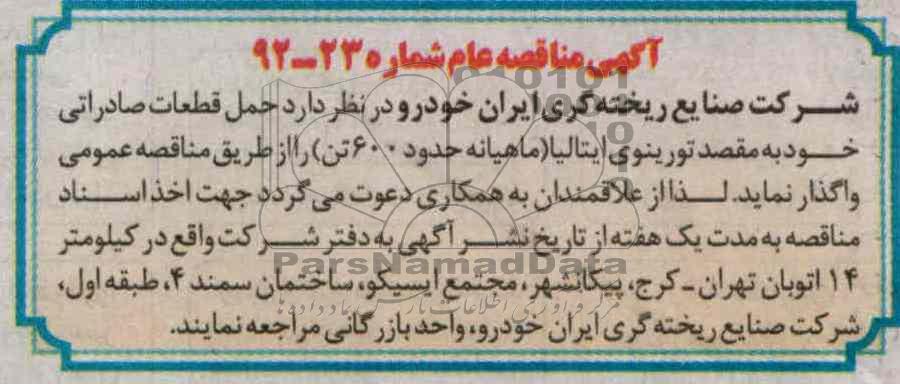 آگهی مناقصه عام شماره ۲۳-۹۲
شرکت صنایع ریخته گری ایران خودرو در نظر دارد حمل قطعات صادراتی
خود به مقصد تورینوی ایتالیا (ماهیانه حدود ۶۰۰ تن) را از طریق مناقصه عمومی
واگذار نماید. لذا از علاقمندان به همکاری دعوت می گردد جهت اخذ اسناد
مناقصه به مدت یک هفته از تاریخ نشر آگهی به دفتر شرکت واقع در کیلومتر
ParsNamadData
۱۴ اتوبان تهران - کرج، پیکانشهر، مجتمع ایسیکو، ساختمان سمند ۴، طبقه اول،
شرکت صنایع ریخته گری ایران خودرو، واحد بازرگانی مراجعه نمایند.